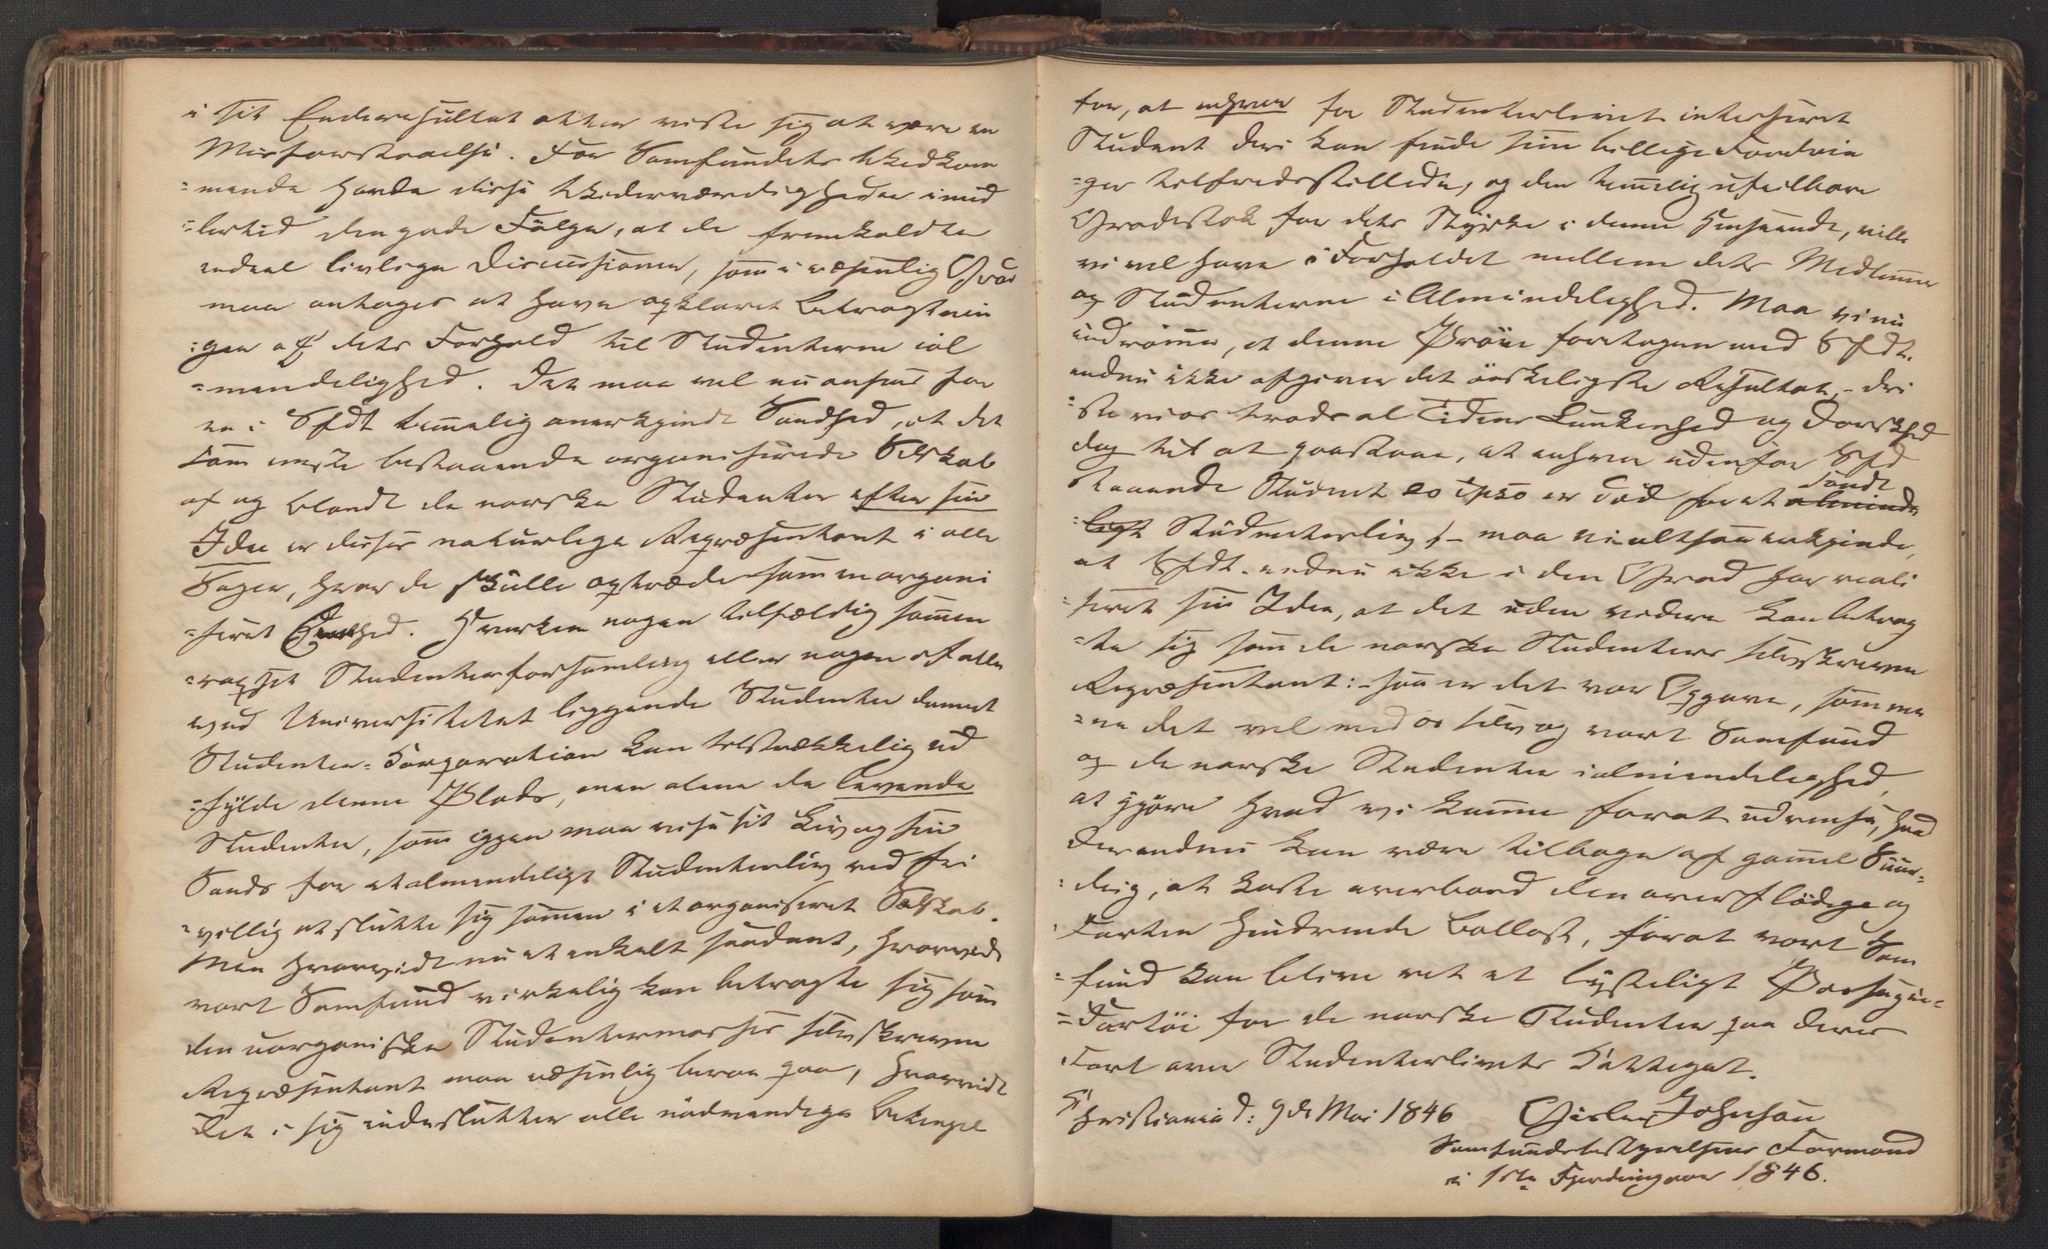 i sit Enderesultat atter viste sig at være en
Misforstaaelse. For Samfundets Vedkom
=mende havde disse Viderværdigheder imid
=lertid den gode Følge, at de fremkaldte
endeel livlige Discussioner, som i væsenlig Grad
maa antages at have opklaret Betragtnin
=gen af dets Forhold til Studenterne ial
=mindelighed. Det maa vel nu ansees for
en i Sfdt temmelig anerkjendt Sandhed, at det
som eneste bestaaende organiserede Selskab
af og blandt de norske Studenter efter sin
Idee er disses naturlige Repræsentant i alle
Sager, hvor de skulle optræde som en organi
=seret Eenhed. Hverken nogen tilfældig sammen
=raffet Studenterforsamling eller nogen af alle
ved Universitetet liggende Studenter dannet
Studenter=Corporation kan tilstrækkelig ud
=fylde denne Plads, men alene de levende
Studenter, som igjen maa vise sit Liv og sin
Sands for et almindeligt Studenterliv ved fri
=villig at slutte sig sammen i et organiseret Selskab.
Men hvorvidt nu et enkelt saadant, hvorvidt
vort Samfund virkelig kan betragte sig som
den uorganiske Studentermasses selvskrevne
Repræsentant maa væsenlig beroe paa, hvorvidt
det i sig indeslutter alle nødvendige Betingel
for, at enhver for Studenterlivet interesseret
Student deri kan finde sine billige Fordrin
=ger tilfredsstillede, og den temmelig ufeilbare
Gradestok for dets Styrke i denne Henseende, ville
vi vel have i Forholdet mellem dets Medlemmer
og Studenterne i Almindelighed. Maa vi nu
indrømme, at denne Prøve foretagen med Sfdt.
endnu ikke afgiver det ønskeligste Resultat, – dri
=ste vi os trods al Tidens Lunkenhed og Dorskhed
dog til at paastaae, at enhver udenfor Sfd
staaende Student eo ipso er død for et sandt alminde
=ligt Studenterliv, – maa vi altsaa erkjende,
at Sfdt. endnu ikke i den Grad har reali
=seret sin Idee, at det uden videre kan betrag
=te sig som de norske Studenters selvskrevne
Repræsentant: – saa er det vor Opgave, som me
=ne det vel med os selv og vort Samfund
og de norske Studenter i almindelighed,
at gjøre hvad vi kunne for at udrense, hvad
der endnu kan være tilbage af gammel Suur=
=deig, at kaste overbord den overflødige og
Farten hindrende Ballast, for at vort Sam
=fund kan blive ret et lysteligt Passageer=
=Fartøi for de norske Studenter paa deres
Fart over Studenterlivets Kattegat.
Christiania d: 9de Mai 1846 Gisle Johnson
Samfundsbestyrelsens Formand
i 1ste Fjerdingaar 1846.